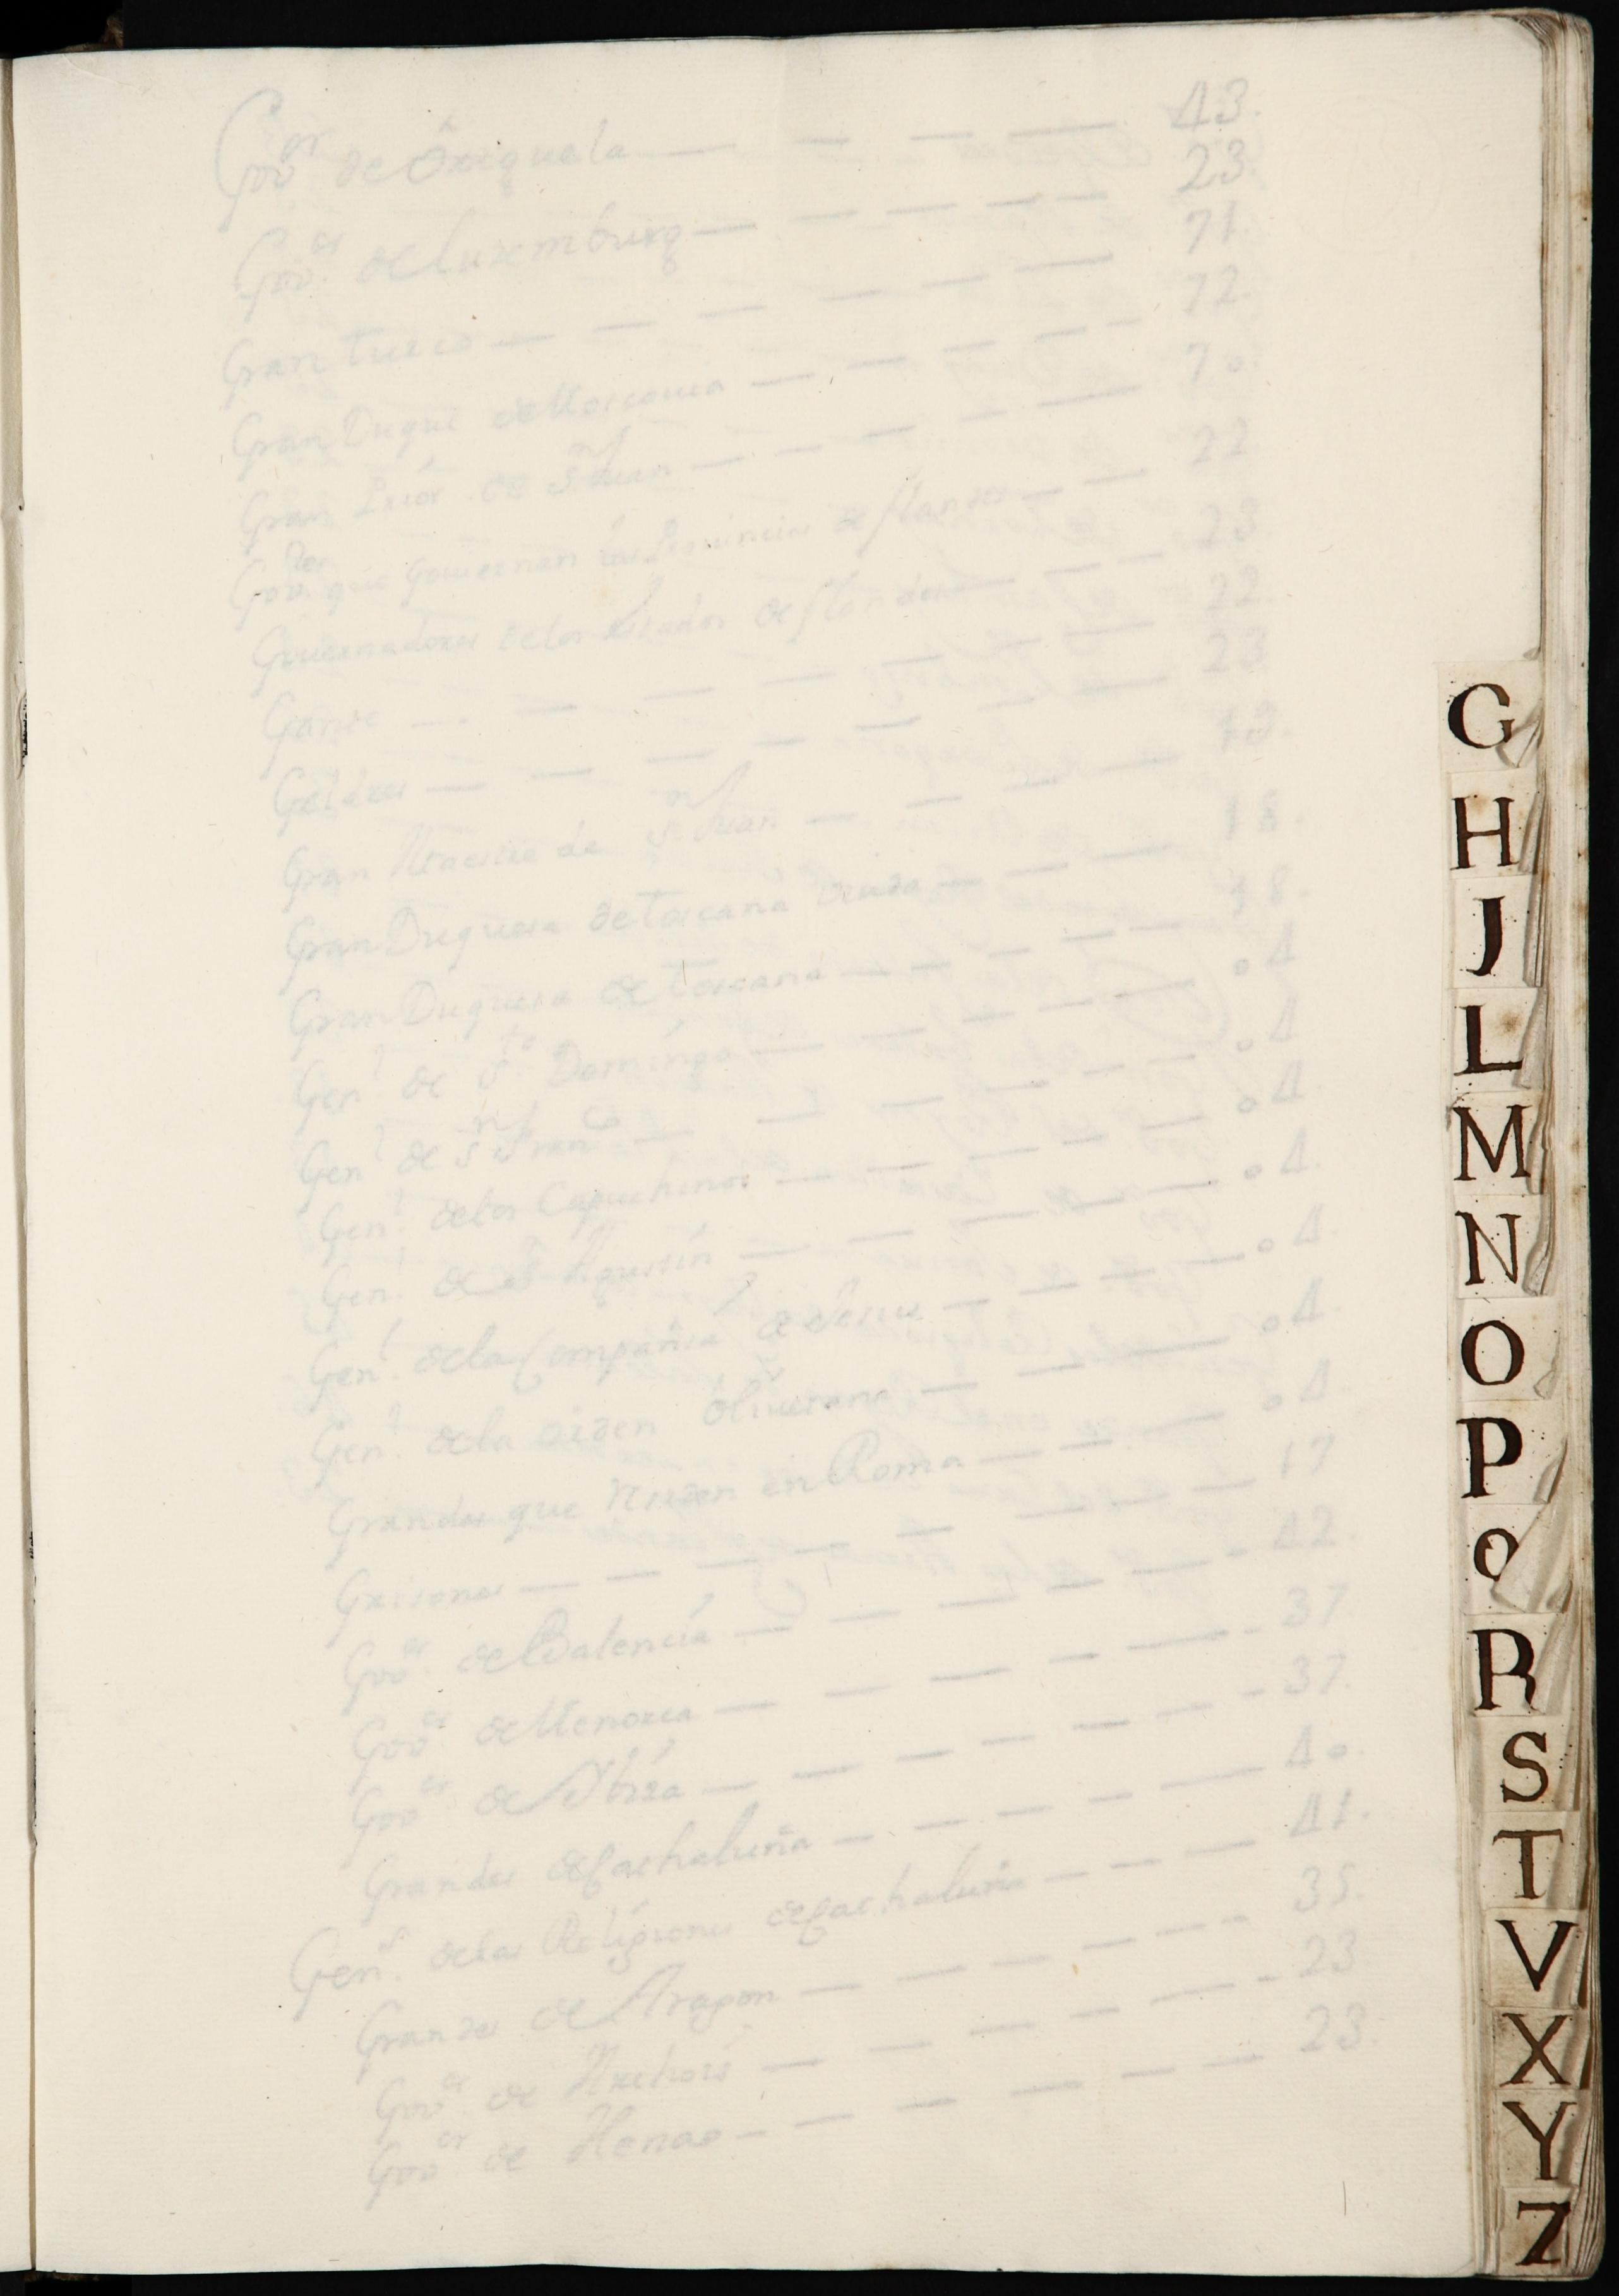 Gov.or de Orequela — — — — 43.
Gov.or de Luxemburg — — — — — 23.
Gran Turco — — — — — — 71.
Gran Duque de Moscouia — — — — — 72.
Gran Prior de S.n Juan — — — — — 70.
Gov.res que gouiernan las Prouincias de flandes — — 22
Gouernadores de los estados de flandes — — — 23
Gante — — — — — — 22.
— — — — — — — 23
Gran Maestre de S.n Juan — — — —
Gran Duquesa de Toscana Viuda — — — 18.
Gran Duquesa de Toscana — — — — — 18.
Gen.l de S.to Domingo — — — — — 04
Gen.l de S.n Fran.co — — — — — — 04
Gen.l de los Capuchinos — — — — — 04.
Gen.l de S. Agustin — — — — — 04.
Gen.l de la Compañia de Jesus — — — — 04.
Gen.l de la orden — — — 04.
Grandes que residen en Roma — — — 04.
Grisones — — — — — — — 17
Gov.or de Balencia — — — — — 42.
Gov.or de Menorca — — — — — 37
Gov.or de Ybiza — — — — — — 37.
Grandes de Cathaluña — — — — — 40.
Gen.s de las Religiones de Cathaluña — — — 41.
Grandes de Aragon — — — — — 35.
Gov.or de — — — — — 23
Gov.or de Henao — — — — — — 23.
G
H
J
L
M
N
O
P
Q
R
S
T
V
X
Y
Z